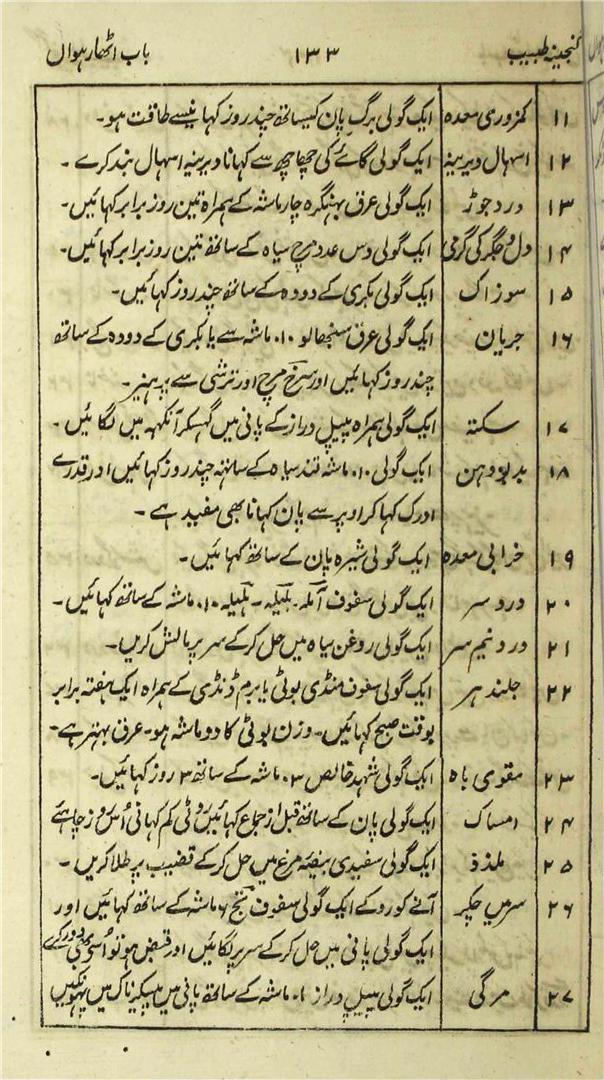 گنجینہ طبیب ۱۳۳ باب اٹھارہواں
۱۱ کمزوری معدہ ایک گولی برگ پان کیساتھ چند روز کہانیسے طاقت ہو۔
۱۲ اسہال دیرینہ ایک گولی گائے کی چھاچھ سے کہانا دیرینہ اسہال بند کرے۔
۱۳ درد جوڑ ایک گولی عرق بہنگرہ چار ماشہ کے ہمراہ تین روز برابر کہائیں۔
۱۴ دل و جگر کی گرمی ایک گولی دس عدد مرچ سیاہ کے ساتھ تین روز برابر کہائیں۔
۱۵ سوزاک ایک گولی بکری کے دودہ کے ساتھ چند روز کہائیں۔
۱۶ جریان ایک گولی عرق سنبھالو ۱۰ ماشہ سے یا بکری کے دودہ کے ساتھ
چند روز کہائیں اور سرخ مرچ اور ترشی سے پرہیز۔
۱۷ سکتہ ایک گولی ہمراہ پیپل دراز کے پانی میں گہسکر آنکہہ میں لگائیں۔
۱۸ بدبو دہن ایک گولی ۱۰ ماشہ قند سیاہ کے ساتہہ چند روز کہائیں اور قدرے
ادرک کہا کر اوپر سے پان کہانا بھی مفید ہے۔
۱۹ خرابی معدہ ایک گولی شیرہ پان کے ساتھ کہائیں۔
۲۰ درد سر ایک گولی سفوف آملہ۔ بلیلہ۔ ہلیلہ ۱۰ ماشہ کے ساتھ کہائیں۔
۲۱ درد نیم سر ایک گولی روغن سیاہ میں حل کرکے سر پر مالش کریں۔
۲۲ جلندہر ایک گولی سفوف منڈی بوٹی یا برم ڈنڈی کے ہمراہ ایک ہفتہ برابر
بوقت صبح کہائیں۔ وزن بوٹی کا دو ماشہ ہو۔ عرق بہتر ہے۔
۲۳ مقوی باہ ایک گولی شہد خالص ۳ ماشہ کے ساتھ ۳ روز کہائیں۔
۲۴ امساک ایک گولی پان کے ساتھ قبل از جماع کہائیں روٹی کم کہانی اُس روز چاہئے
۲۵ ملذذ ایک گولی سفیدی بیضہ مرغ میں حل کرکے قضیب پر طلا کریں۔
۲۶ سر میں چکر آنے کو روکے ایک گولی سفوف ۶ ماشہ کے ساتھ کہائیں اور
ایک گولی پانی میں حل کرکے سر پر لگائیں اور قبض ہو تو اُسکو بھی دور کرے
۲۷ مرگی ایک گولی پیپل دراز ۱۰ ماشہ کے ساتھ پانی میں پیسکر ناک میں پہونکیں